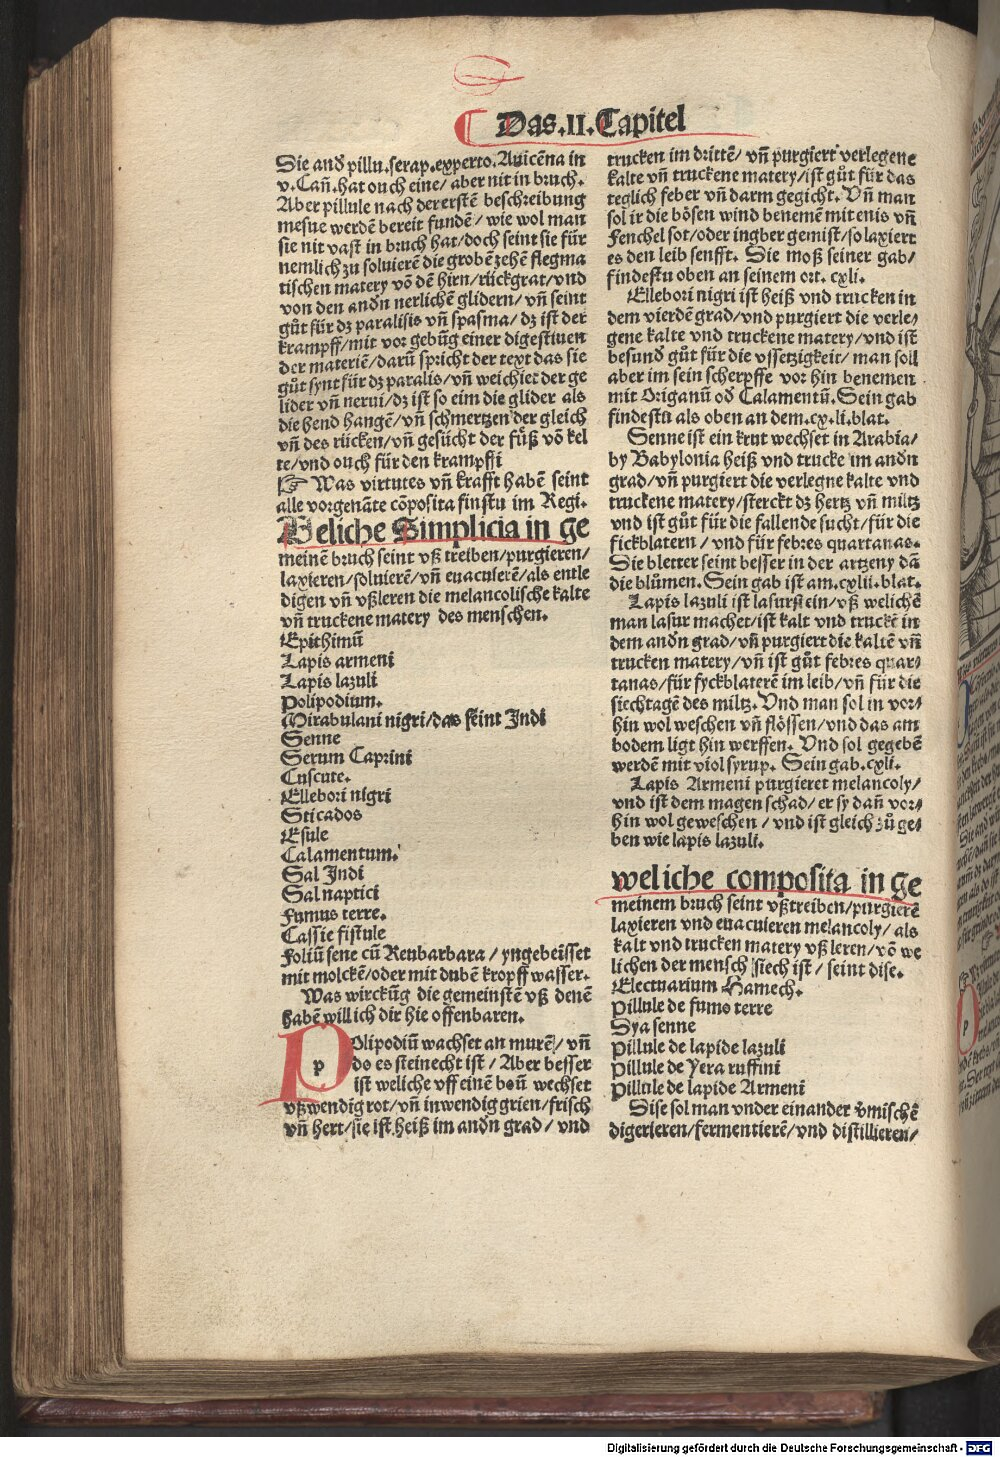 Das.II.Capitel
Sie and pillu.serap.experto.Auicēna in
v.Cañ.hat ouch eine/ aber nit in bruch.
Aber pillule nach der erstē beschreibung
mesue werdē bereit fundē/ wie wol man
sie nit vast in bruch hat/doch seint sie für
nemlich zu soluierē die grobē zehē flegma
tischen matery vō dē hirn/rückgrat/vnd
von den andn nerlichē glidern/ vñ seint
gůt für dz paralisis vñ spasma/ dz ist der
krampff/mit vor gebūg einer digestiuen
der materiē/darū spricht der text das sie
gůt synt für dz paralis/vñ weichier der ge
lider vñ nerui/dz ist so eim die glider als
die hend hangē/vñ schmertzen der gleich
vñ des rücken/vñ gesücht der füß vō kel
te/vnd ouch für den krampffi
☞ Was virtutes vñ krafft habē seint
alle vorgenāte cōposita finstu im Regi.
Weliche Simplicia in ge
meinē bruch seint vß treiben/purgieren/
laxieren/soluierē/vñ euacuierē/als entle
digen vñ vßleren die melancolische kalte
vñ truckene matery des menschen.
Epithimū
Lapis armeni
Lapis lazuli
Polipodium.
Mirabulani nigri/das seint Indi
Senne
Serum Caprini
Cuscute.
Ellebori nigri
Sticados
Esule
Calamentum.
Sal Indi
Sal naptici
Fumus terre.
Cassie fistule
Foliū sene cū Reubarbara / yngebeisset
mit molckē/oder mit dubē kropff wasser.
Was wirckūg die gemeinstē vß denē
habē will ich dir hie offenbaren.
Polipodiū wachset an murē/ vñ
do es steinecht ist / Aber besser
ist weliche vff einē boū wechset
vßwendig rot/vñ inwendig grien/frisch
vñ hert/sie ist heiß im andn grad/ vnd
trucken im drittē/ vñ purgiert verlegene
kalte vñ truckene matery/ist gůt für das
teglich feber vñ darm gegicht. Vñ man
sol ir die bösen wind benemē mit enis vñ
Fenchel sot/oder ingber gemist/so laxiert
es den leib senfft. Sie moß seiner gab/
findestu oben an seinem ort. cxli.
Ellebori nigri ist heiß vnd trucken in
dem vierdē grad/vnd purgiert die verle/
gene kalte vnd truckene matery/vnd ist
besund gůt für die vssetzigkeit/ man soll
aber im sein scherpffe vor hin benemen
mit Origanū od Calamentū. Sein gab
findestū als oben an dem.cx.li.blat.
Senne ist ein krut wechset in Arabia/
by Babylonia heiß vnd trucke im andn
grad/vñ purgiert die verlegne kalte vnd
truckene matery/sterckt dz hertz vñ miltz
vnd ist gůt für die fallende sucht/für die
fickblatern / vnd für febres quartanas.
Die bletter seint besser in der artzeny dā
die blůmen. Sein gab ist am.cxlii.blat.
Lapis lazuli ist lasurstein/vß welichē
man lasur machet/ist kalt vnd truckē in
dem andn grad/vñ purgiert die kaltē vñ
trucken matery/vñ ist gůt febres quar/
tanas/für fyckblaterē im leib/vñ für die
siechtagē des miltz. Vnd man sol in vor/
hin wol weschen vñ flössen/vnd das am
bodem ligt hin werffen. Vnd sol gegebē
werdē mit viol syrup. Sein gab.cxli.
Lapis Armeni purgieret melancoly/
vnd ist dem magen schad/ er sy dañ vor/
hin wol geweschen / vnd ist gleich zů ge/
ben wie lapis lazuli.
weliche composita in ge
meinem bruch seint vßtreiben/purgierē
laxieren vnd euacuieren melancoly/ als
kalt vnd trucken matery vß leren/vō we
lichen der mensch siech ist / seint dise.
Electuarium Hamech.
Pillule de fumo terre
Dya senne
Pillule de lapide lazuli
Pillule de Yera ruffini
Pillule de lapide Armeni
Dise sol man vnder einander v̄mischē
digerieren/fermentierē/vnd distillieren/
Digitalisierung gefördert durch die Deutsche Forschungsgemeinschaft - DFG